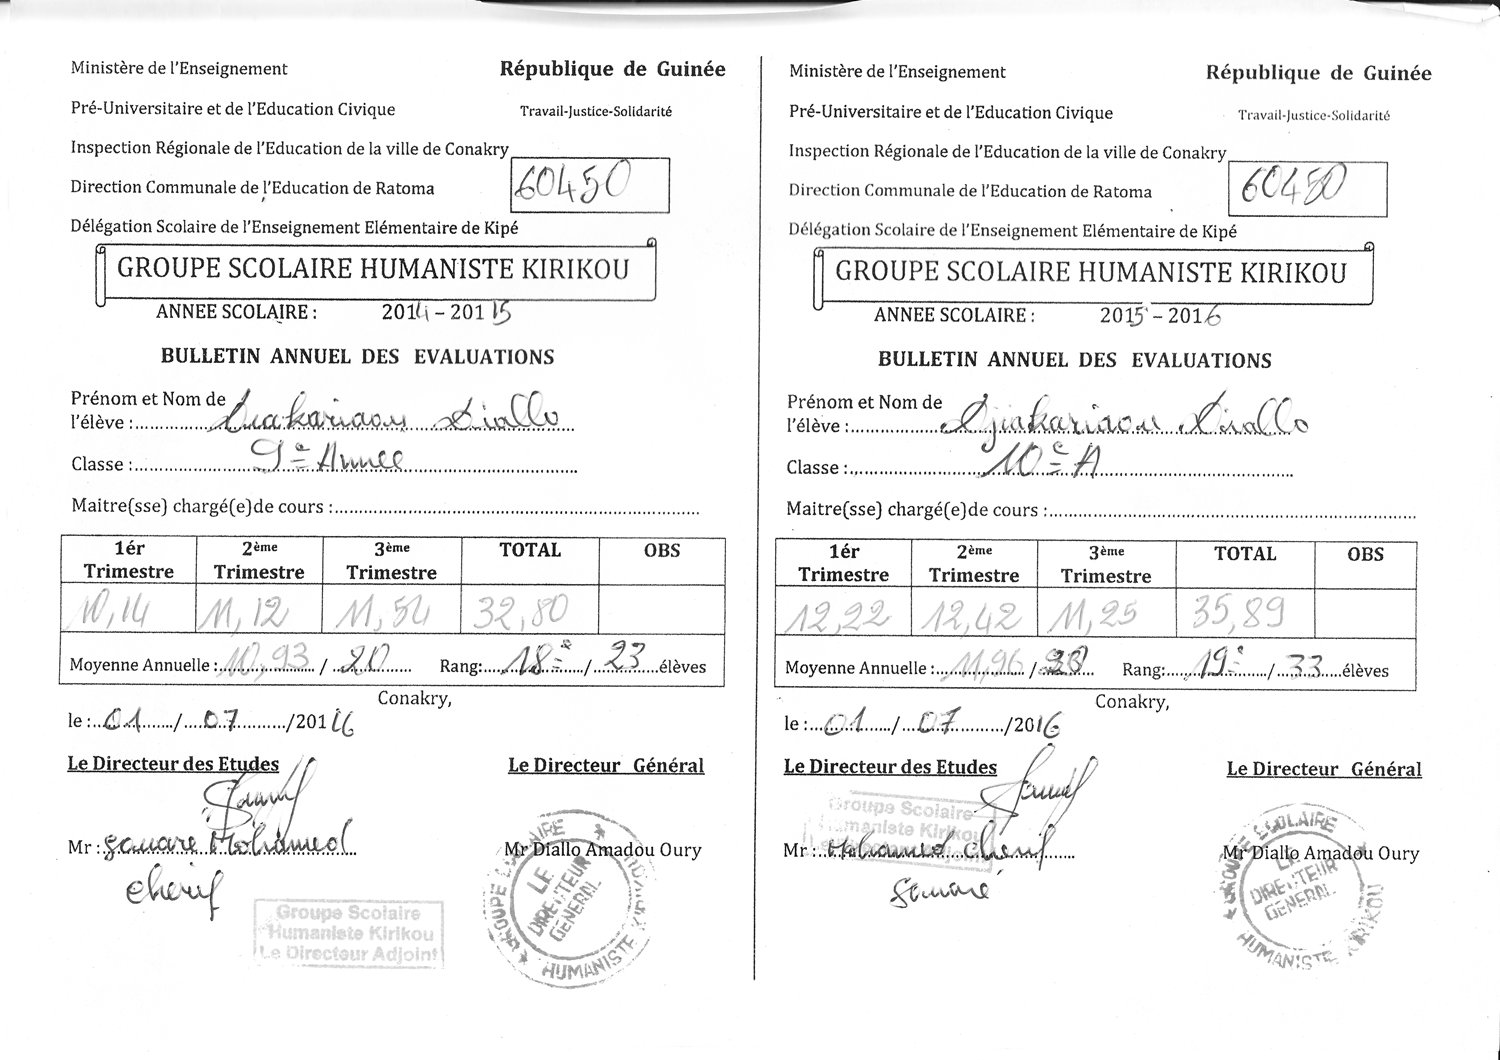 Ministère de l'Enseignement
République de Guinée
Pré-Universitaire et de l'Education Civique
Travail-Justice-Solidarité
Inspection Régionale de l'Education de la ville de Conakry
60450
Direction Communale de l'Education de Ratoma
Délégation Scolaire de l'Enseignement Elémentaire de Kipé
GROUPE SCOLAIRE HUMANISTE KIRIKOU
ANNEE SCOLAIRE : 2014 – 2015
BULLETIN ANNUEL DES EVALUATIONS
Prénom et Nom de
l'élève : Diakariaou Diallo
Classe : 9e Année
Maitre(sse) chargé(e)de cours :
1ér Trimestre 2ème Trimestre 3ème Trimestre TOTAL OBS
10,14 11,12 11,54 32,80
Moyenne Annuelle : 10,93 / 20 Rang: 18e / 23 élèves
Conakry,
le : 01 / 07 /2016
Le Directeur des Etudes
Le Directeur Général
Mr : Sanare Mohamed
Cherif
Mr Diallo Amadou Oury
Groupe Scolaire
Humaniste Kirikou
Le Directeur Adjoint
GROUPE SCOLAIRE HUMANISTE KIRIKOU
LE DIRECTEUR GENERAL
Ministère de l'Enseignement
République de Guinée
Pré-Universitaire et de l'Education Civique
Travail-Justice-Solidarité
Inspection Régionale de l'Education de la ville de Conakry
60450
Direction Communale de l'Education de Ratoma
Délégation Scolaire de l'Enseignement Elémentaire de Kipé
GROUPE SCOLAIRE HUMANISTE KIRIKOU
ANNEE SCOLAIRE : 2015 – 2016
BULLETIN ANNUEL DES EVALUATIONS
Prénom et Nom de
l'élève : Djiakariaou Diallo
Classe : 10e A
Maitre(sse) chargé(e)de cours :
1ér Trimestre 2ème Trimestre 3ème Trimestre TOTAL OBS
12,22 12,42 11,25 35,89
Moyenne Annuelle : 11,96 / Rang: 19e / 33 élèves
Conakry,
le : 01 / 07 /2016
Le Directeur des Etudes
Le Directeur Général
Groupe Scolaire
Humaniste Kirikou
Mr : Mohamed Cherif
Sanaré
Mr Diallo Amadou Oury
GROUPE SCOLAIRE HUMANISTE KIRIKOU
LE DIRECTEUR GENERAL